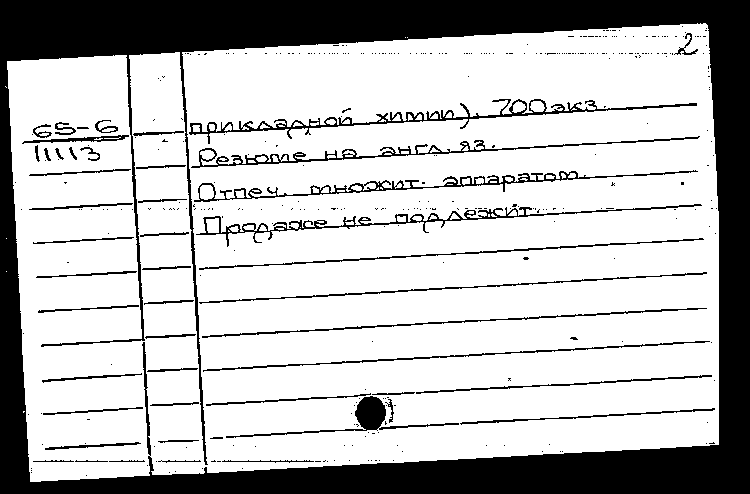 2
65-6
11113
прикладной химии). 700 экз.
Резюме на англ. яз.
Отпеч. множит. аппаратом.
Продаже не подлежит.